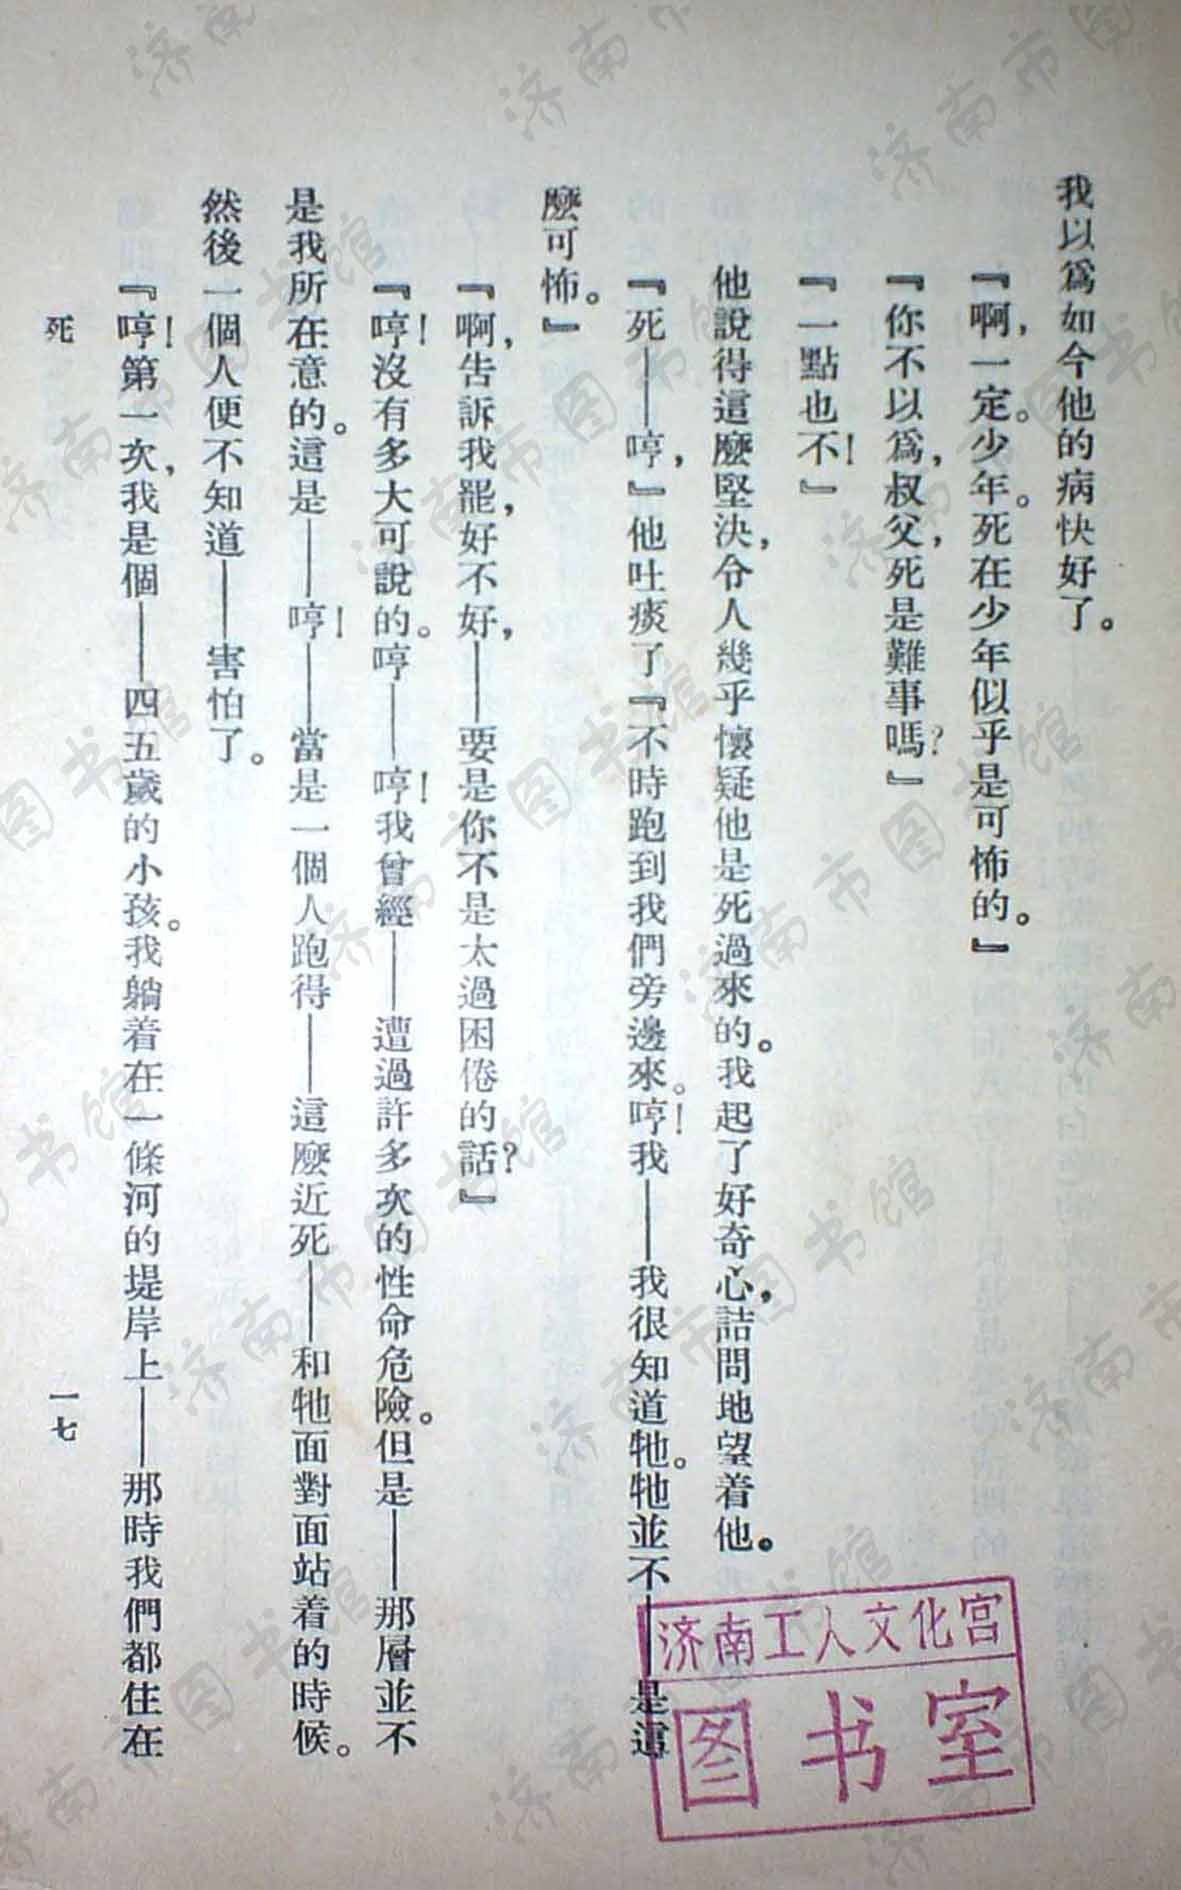 我以爲如今他的病快好了。
『啊，一定。少年。死在少年似乎是可怖的。』
『你不以爲，叔父，死是難事嗎？』
『一點也不！』
他說得這麼堅決，令人幾乎懷疑他是死過來的。我起了好奇心，詰問地望着他。
『死——哼，』他吐痰了『不時跑到我們旁邊來。哼！我——我很知道牠。牠並不——是這
麼可怖。』
『啊，告訴我罷，好不好，——要是你不是太過困倦的話？』
『哼！沒有多大可說的。哼——哼！我曾經——遭過許多次的性命危險。但是——那層並不
是我所在意的。這是——哼！——當是一個人跑得——這麼近死——和牠面對面站着的時候。
然後一個人便不知道——害怕了。
『哼！第一次，我是個——四五歲的小孩。我躺着在一條河的堤岸上——那時我們都住在
死
一七
济南工人文化宫
图书室
济南市图书馆